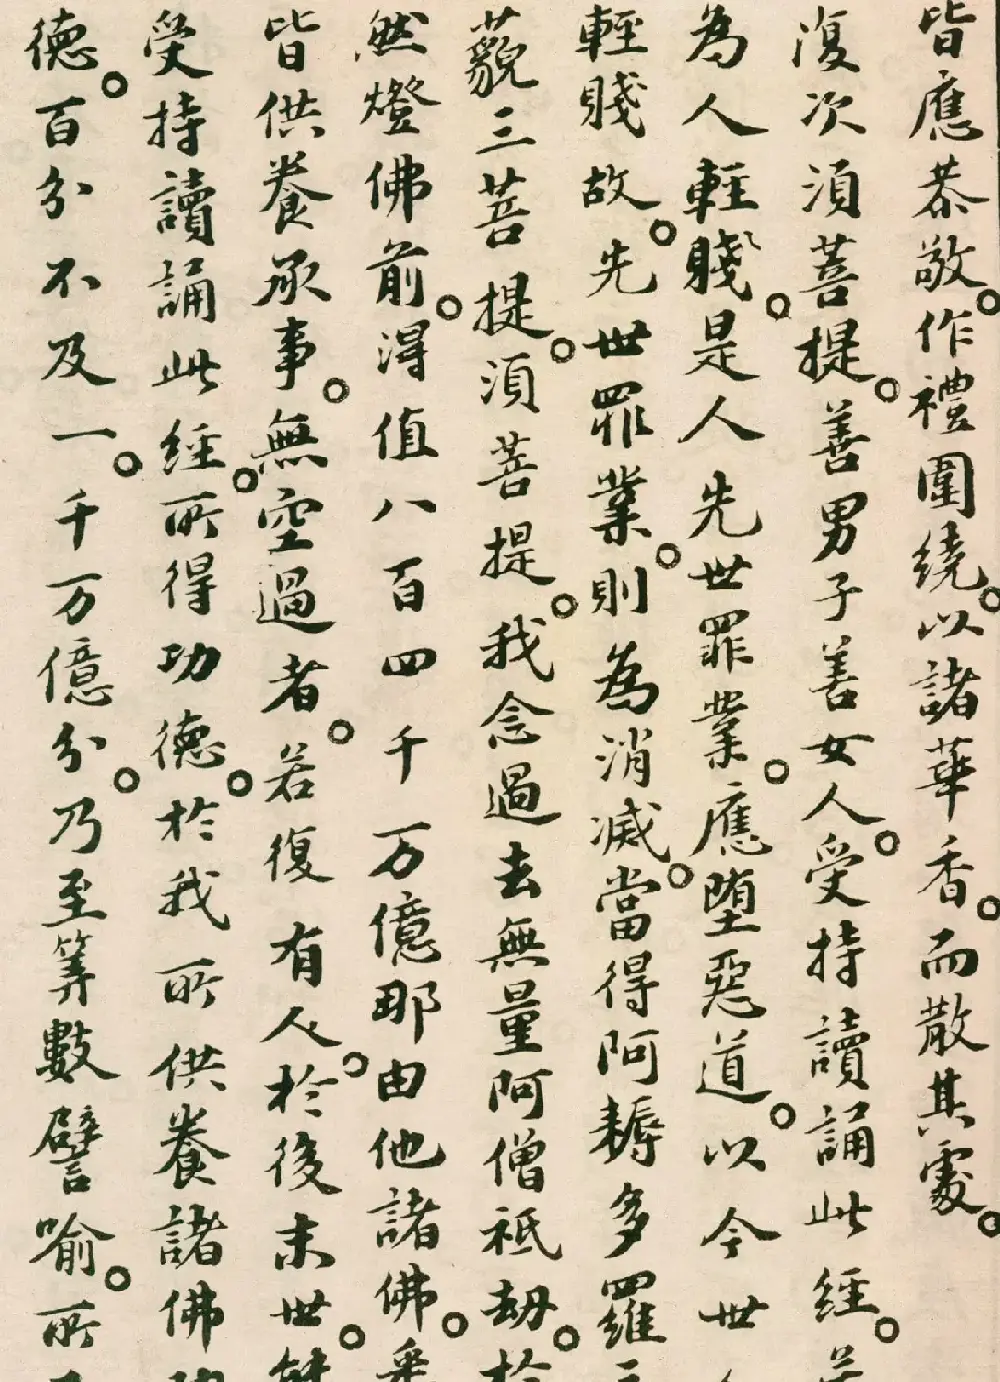 皆應恭敬。作禮圍繞。以諸華香。而散其處。
復次須菩提。善男子善女人。受持讀誦此經。若
為人輕賤。是人先世罪業。應墮惡道。以今世人
輕賤故。先世罪業。則為消滅。當得阿耨多羅三
藐三菩提。須菩提。我念過去無量阿僧祇劫。於
然燈佛前。得值八百四千万億那由他諸佛。悉
皆供養承事。無空過者。若復有人。於後末世。能
受持讀誦此經。所得功德。於我所供養諸佛功
德。百分不及一。千万億分。乃至筭數譬喻。所不